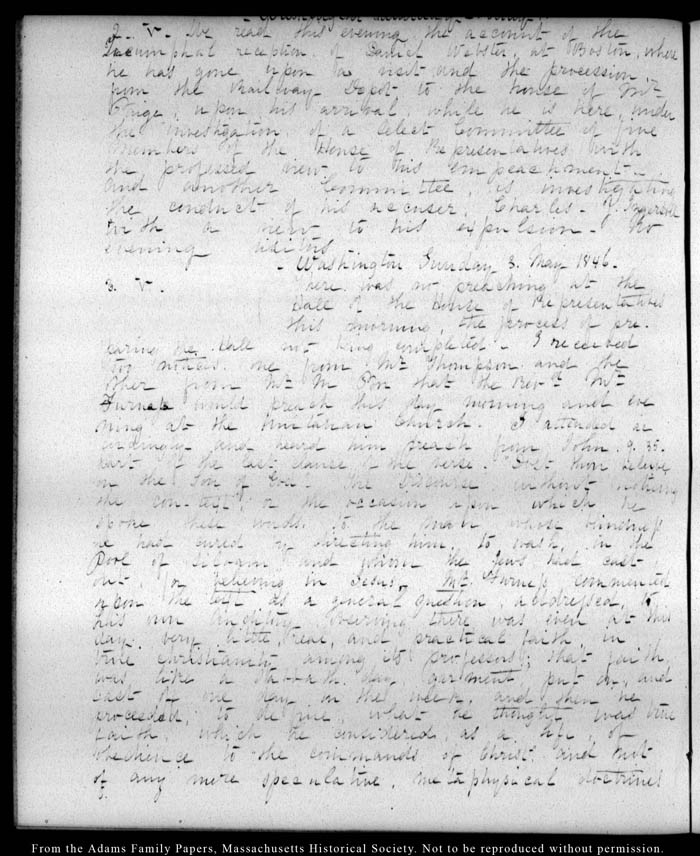 2. V. We read this evening the account of the
triumphal reception of Daniel Webster, at Boston, where
he has gone upon a visit and the procession,
from the Railway Depot to the house of Mr
Paige, upon his arrival, while he is here, under
the investigation of a select Committee of five
Members of the House of Representatives, with
the professed view to his impeachment—
and another Committee, is investigating
the conduct of his accuser, Charles J. Ingersoll
with a view to his expulsion— No
evening visitors.
Washington Sunday 3. May 1846.
3. V. There was no preaching at the
Hall of the House of Representatives
this morning, the process of pre-
paring the Hall not being completed— I received
two notices one from Mr Thompson and the
other from Mr that the Revd. Mr
Furness would preach this day morning and eve
ning at the Unitarian Church. I attended ac
cordingly and heard him preach from John. 9. 35.
part of the last clause of the verse. "Dost thou believe
on the Son of God" The Discourse without noticing
the context, or the occasion upon which he
spoke these words to the man whose blindness
he had cured by directing him, to wash, in the
Pool of Siloam, and whom the Jews had cast
out, for believing in Jesus, Mr. Furness commented
upon the text as a general question, addressed, to
his own there was even at this
day very little, real, and practical faith in
true Christianity among its professors; that faith,
was like a Sabbath day garment, put on, and
cast off one day in the week, and then he
proceeded, to define, what he thought was true
faith, which he considered, as a life, of
obedience to the commands of Christ, and not
of any mere speculative, metaphysical doctrines
From the Adams Family Papers, Massachusetts Historical Society. Not to be reproduced without permission.